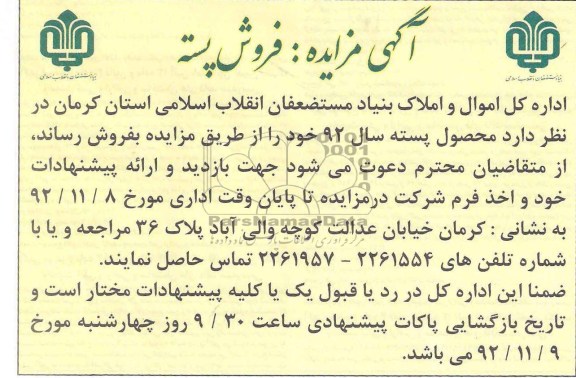 آگهی مزایده : فروش پسته
بنیاد مستضعفان انقلاب اسلامی
بنیاد مستضعفان انقلاب اسلامی
اداره کل اموال و املاک بنیاد مستضعفان انقلاب اسلامی استان کرمان در
نظر دارد محصول پسته سال ۹۲ خود را از طریق مزایده بفروش رساند،
از متقاضیان محترم دعوت می شود جهت بازدید و ارائه پیشنهادات
خود و اخذ فرم شرکت درمزایده تا پایان وقت اداری مورخ ۸ / ۱۱ / ۹۲
به نشانی : کرمان خیابان عدالت کوچه والی آباد پلاک ۳۶ مراجعه و یا با
شماره تلفن های ۲۲۶۱۵۵۴ - ۲۲۶۱۹۵۷ تماس حاصل نمایند.
ضمنا این اداره کل در رد یا قبول یک یا کلیه پیشنهادات مختار است و
تاریخ بازگشایی پاکات پیشنهادی ساعت ۳۰ / ۹ روز چهارشنبه مورخ
۹ / ۱۱ / ۹۲ می باشد.
ParsNamadData